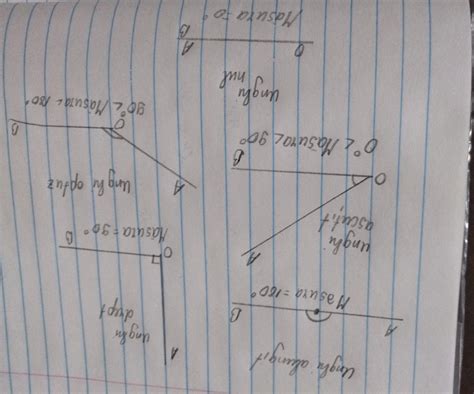 Unghi alungit
A
B
Măsura = 180°
Unghi
drept
A
O
B
Măsura = 90°
Unghi
ascuțit
A
O
B
0° < Măsura < 90°
Unghi optuz
A
O
B
90° < Măsura < 180°
Unghi
nul
O
A
B
Măsura = 0°